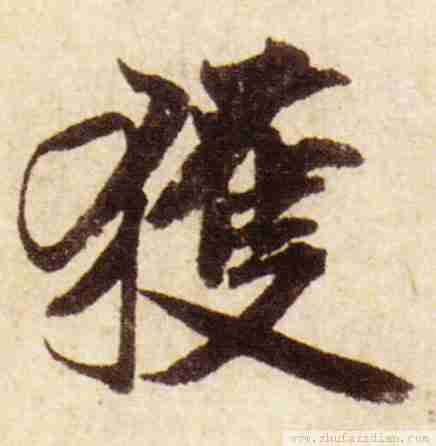 獲
www.shufazidian.com